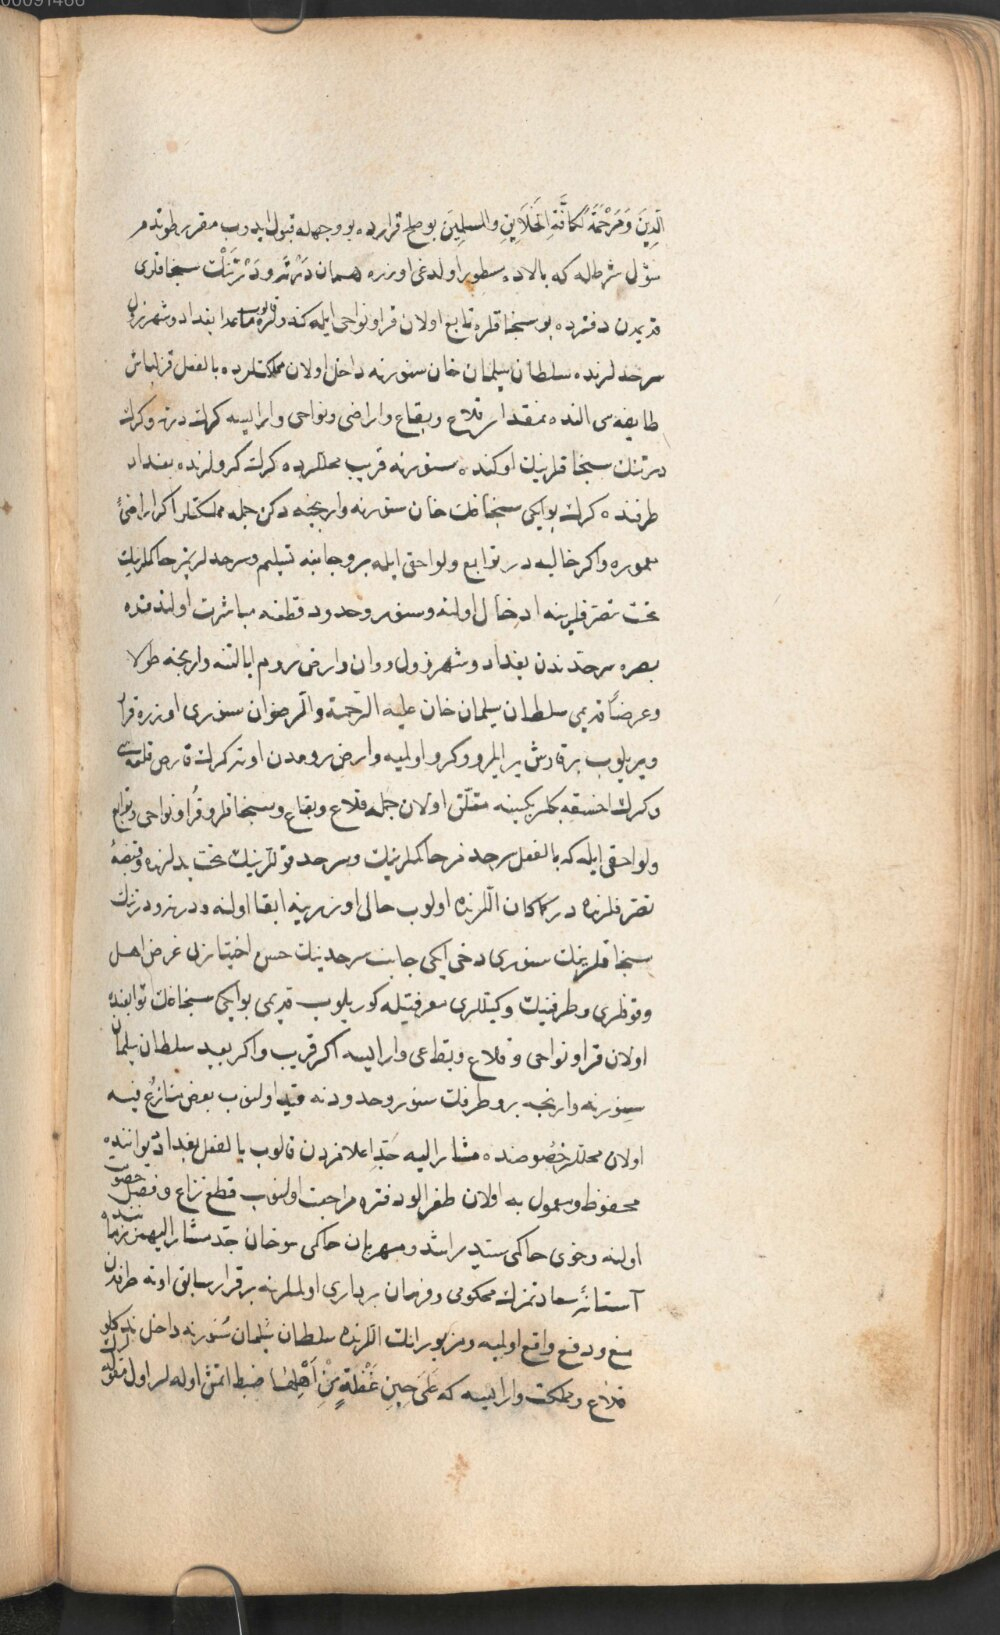 00091486
الدِينَ وَمَرْحَمَةً لكافَّةِ الخَلَايِقِ والمسلمِينَ بو صلح قرارده بو وجهله قبول ايدوب مقرر طوتدم
شول شرطله كه بالاده مسطور اولدغی اوزره همان دَرْتَه ودَرْتَنْك سنجاقلری
قديمدن دفترده بو سنجاقلره تابع اولان قرا ونواحی ايله كندولره قالوب ماعدا بغداد وشهرزول
سرحدلرنده سلطان سليمان خان سنورنه داخل اولان مملكتلرده بالفعل قزلباش
طايفه سی النده نمقدار قلاع وبقاع واراضی ونواحی وار ايسه كرك درنه وكرك
درتنك سنجاقلرينك اوكنده سنورنه قريب محللرده كرك كرولرنده بغداد
طرفنده كرك بو ايكی سنجاغك خان سنورنه وارنجه دكن جمله مملكتلر اكر اراضیٔ
معموره واكر خاليه در توابع ولواحقی ايله برو جانبه تسليم وسرحدلريمز حاكملرينك
تحت تصرفلرينه ادخال اولنه وسنور وحدود قطعنه مباشرت اولندقده
بصره سرحدندن بغداد وشهرزول ووان وارض روم ايالتنه وارنجه طولا
وعرضاً قديمی سلطان سليمان خان عليه الرحمة والرضوان سنوری اوزره قرار
ويريلوب بر قارش ير ايلرو وكرو اولميه وارض رومدن اوته كرك قارص قلعه سی
وكرك اخسقه بكلربكيسنه متعلق اولان جمله قلاع وبقاع وسنجاقلر وقُرا ونواحی وتوابع
ولواحقی ايله كه بالفعل سرحدمز حاكملرينك وسرحد قوللرينك تحت يدلرنده وقبضهٔ
تصرفلرنده در كماكان اللرنده اولوب حالی اوزرينه ابقا اولنه ودرنه ودرتنك
سنجاقلرينك سنوری دخی ايكی جانب سرحدينك حسن اختيارلی غرض اهل
وقوفلری وطرفينك وكيللری معرفتيله كوريلوب قديمی بو ايكی سنجاغك توابعنده
اولان قرا ونواحی وقلاع وبقاعی وار ايسه اكر قريب واكر بعيد سلطان سليمان
سنورنه وارنجه برو طرفك سنور وحدودنه قيد اولنوب بعض متنازعٌ فيه
اولان محللر خصُوصنده مشار اليه جَدِّ اعلامزدن قالوب بالفعل بغداد ديواننده
محفوظ ومعمول به اولان طغرالو دفتره مراجعت اولنوب قطع نزاع وفصل خصومت
اولنه وخوی حاكمی سيد راشد ومهربان حاكمی سوخان جد مشار اليهمز زماننده
آستانهٔ سعادتمزك محكومی وفرمان برداری اولملرينه بر قرار سابق اوته طرفدن
منع ودفع واقع اولميه ومزبورانك اللرنده سلطان سُليمان سُنورنه داخل نه دكلو
قلاع ومملكت وار ايسه كه عَلَی حِينِ غَفْلَةٍ مِنْ اَهْلِهَا ضبط اتمش اوله لر اول مقوله لرك